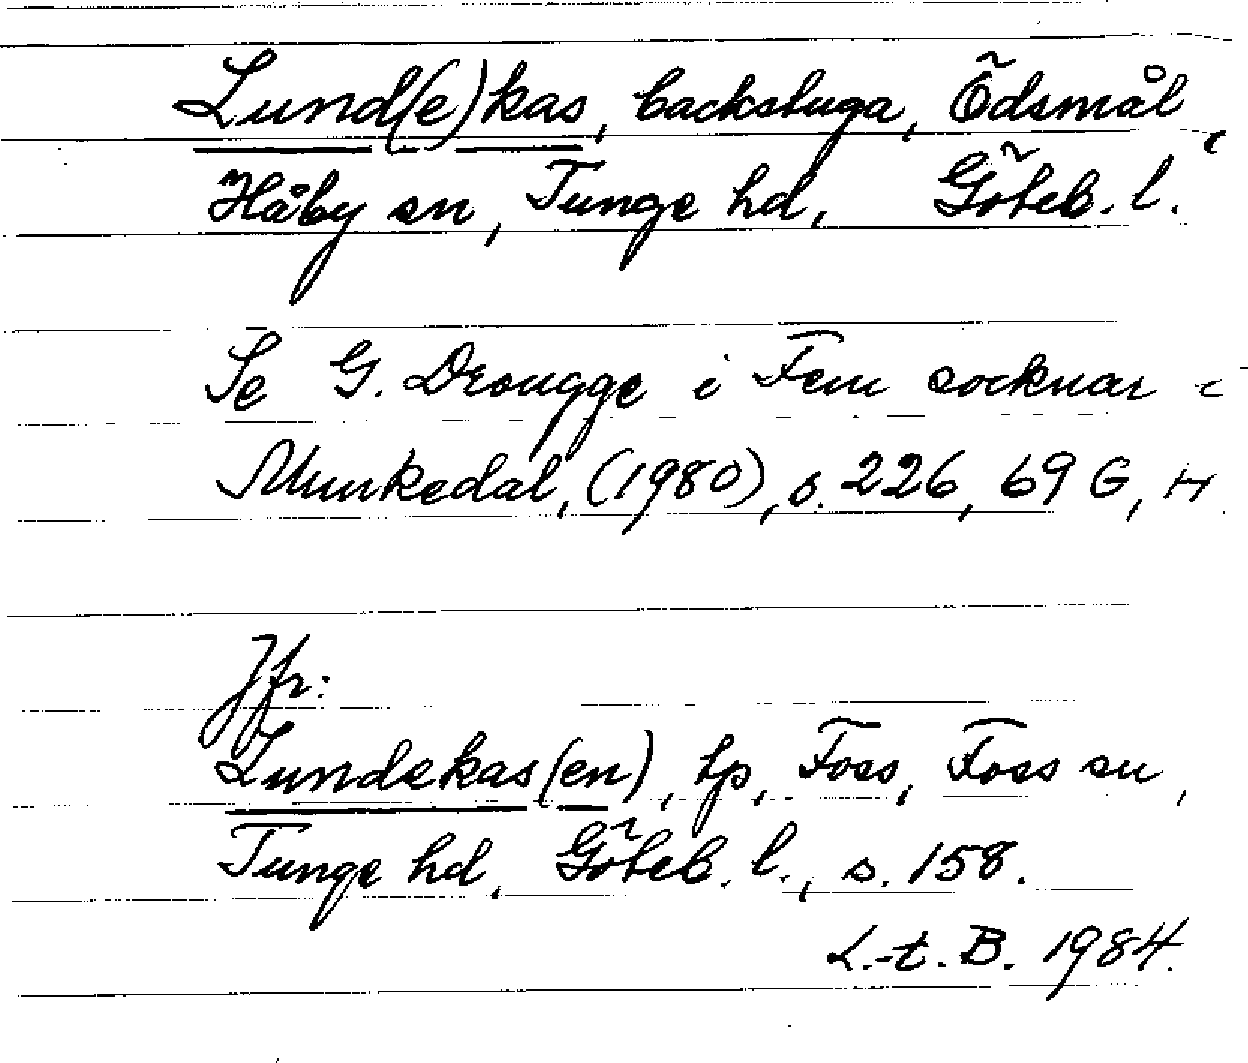 Lund(e)kas, backstuga, Ödsmål,
Håby sn, Tunge hd, Göteb. l.
Se G. Drougge i Fem socknar i
Munkedal, (1980), s. 226, 69 G, H.
Jfr:
Lundekas(en), tp, Foss, Foss sn,
Tunge hd, Göteb. l., s. 158.
L.-t. B. 1984.